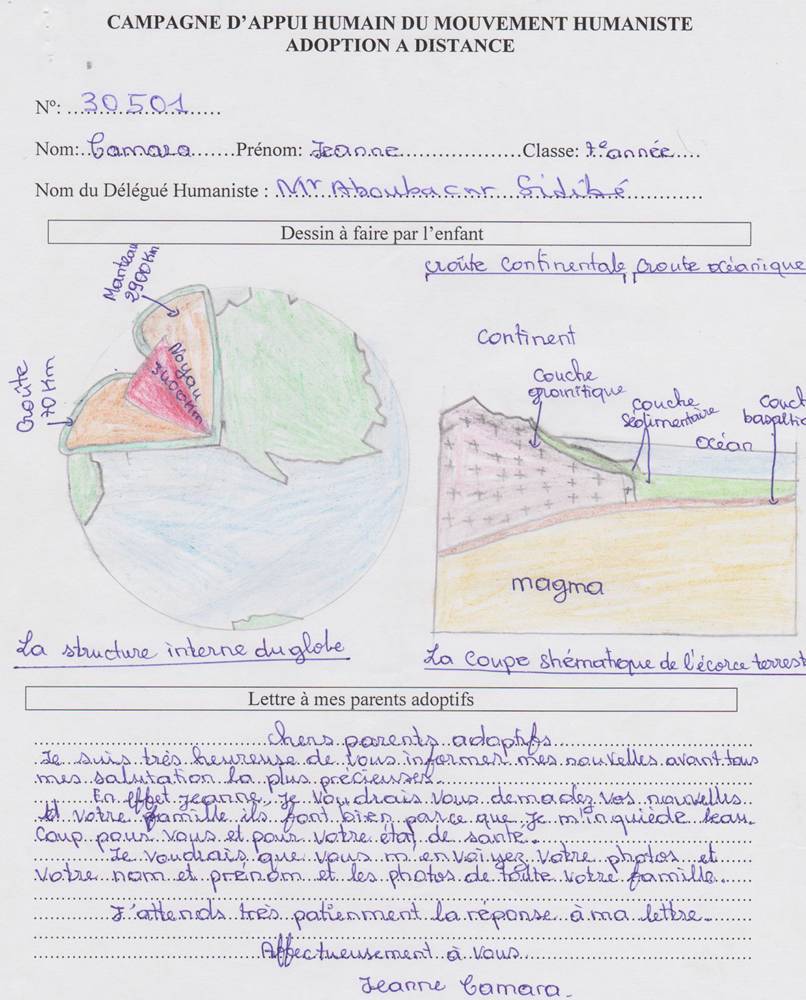 CAMPAGNE D'APPUI HUMAIN DU MOUVEMENT HUMANISTE
ADOPTION A DISTANCE
Nº: 30501
Nom: Camara Prénom: Jeanne Classe: 7e année
Nom du Délégué Humaniste : Mr Aboubacar Sidibé
Dessin à faire par l'enfant
Manteau
2900 Km
Croûte
70 Km
Noyau
3400 Km
La structure interne du globe
croûte continentale, croute océanique
continent
couche
grainitique
couche
sédimentaire
océan
couch
basaltiq
magma
La coupe shématique de l'écorce terrest
Lettre à mes parents adoptifs
chers parents adoptifs
Je suis très heureuse de vous informer mes nouvelles avant tous
mes salutation la plus précieuses.
En effet Jeanne, Je voudrais vous demadez vos nouvelles
et votre famille ils font bien parce que Je m'inquiède beau
coup pour vous et pour votre état de santé.
Je voudrais que vous m'envoiyez votre photos et
votre nom et prénom et les photos de toute votre famille.
J'attends très patienment la réponse à ma lettre.
Affectueusement à vous
Jeanne Camara.